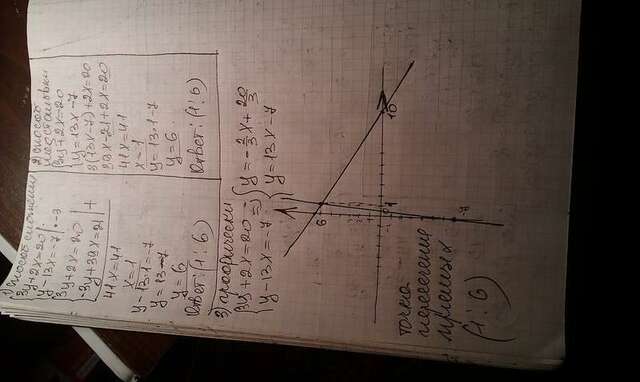 1) способ сложения
{3y+2x=20
y-13x=-7 |·-3
{3y+2x=20
-3y+39x=21 | +
41x=41
x=1
y-13·1=-7
y=13-7
y=6
Ответ: (1; 6)
2) способ
подстановки
{3y+2x=20
y=13x-7
3(13x-7)+2x=20
39x-21+2x=20
41x=41
x=1
y=13·1-7
y=6
Ответ: (1; 6)
3) графически
{3y+2x=20
y-13x=-7 => {y=-2/3x+20/3
y=13x-7
6
1
10
-7
точка
пересечение
прямых
(1; 6)